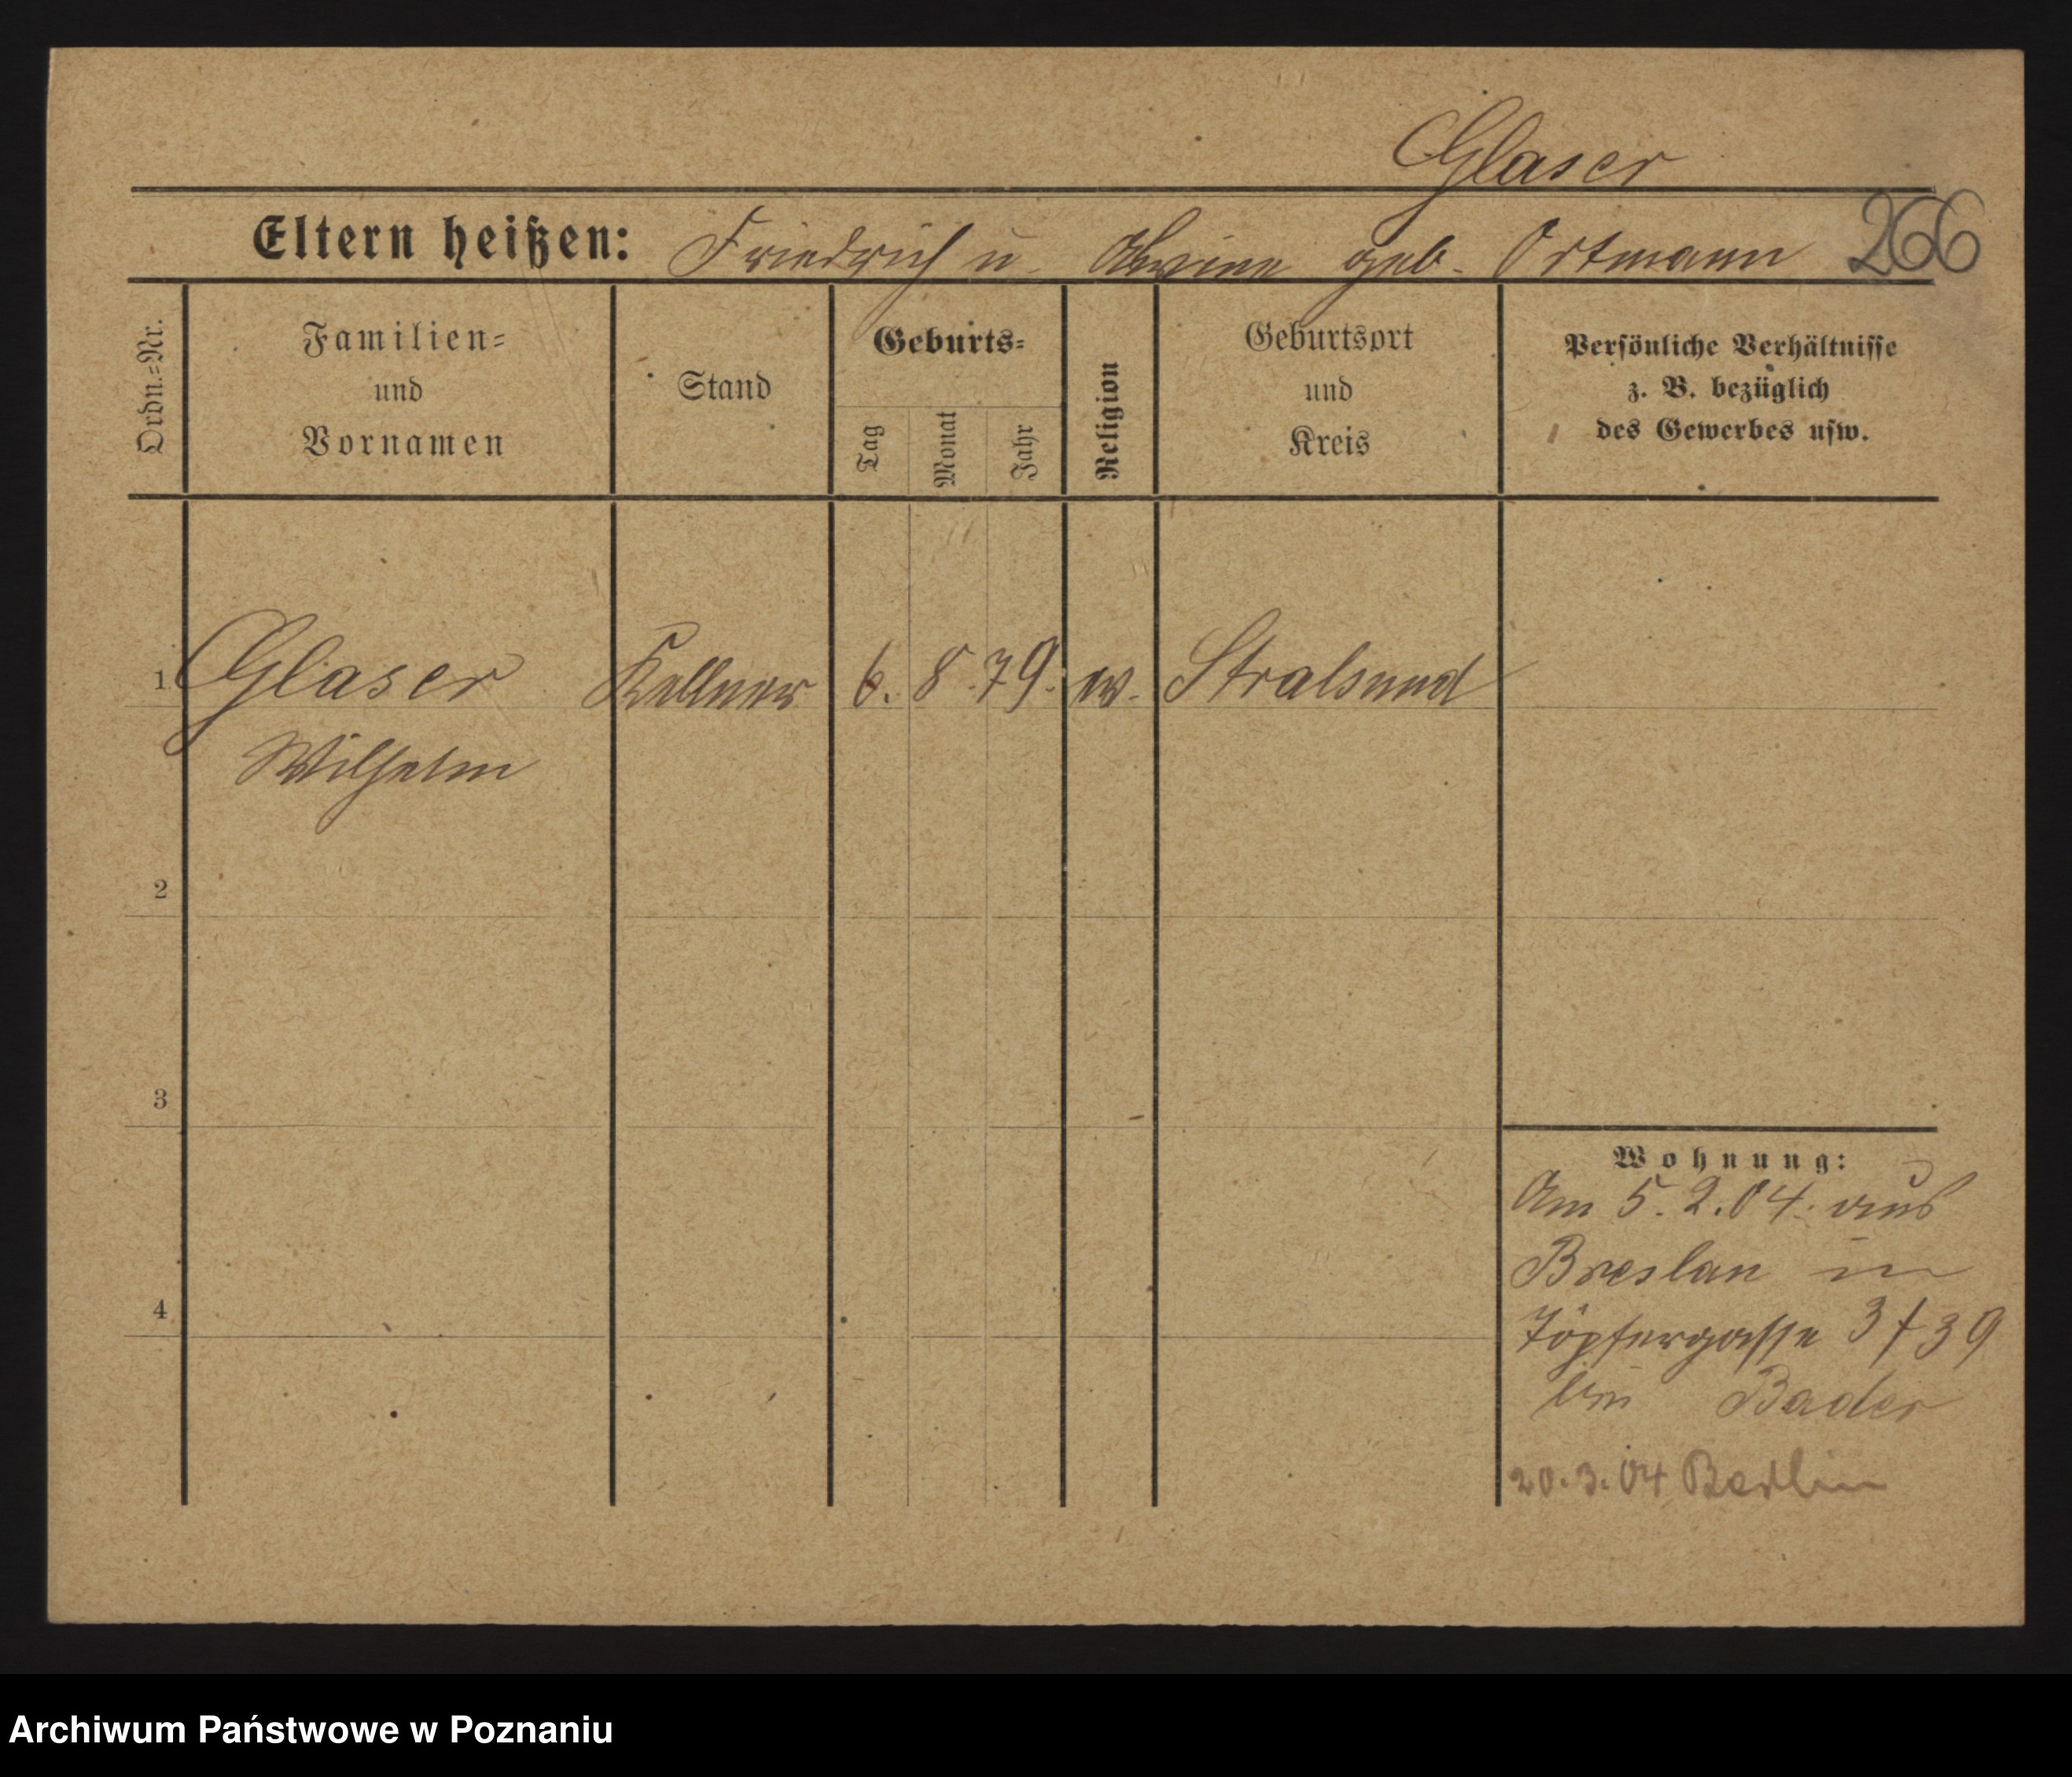 Glaser
Eltern heißen: Friedrich u. Alwine geb. Ortmann 266
Ordn.=Nr.
Familien=
und
Vornamen
Stand
Geburts=
Tag
Monat
Jahr
Religion
Geburtsort
und
Kreis
Persönliche Verhältnisse
z. B. bezüglich
des Gewerbes usw.
1 Glaser Kellner 6. 8. 79. Stralsund
Wilhelm
2
3
4
Wohnung:
Am 5. 2. 04. aus
Breslau in
Töpfergasse 3 / 39
bei Bader
20. 3. 04 Berlin
Archiwum Państwowe w Poznaniu